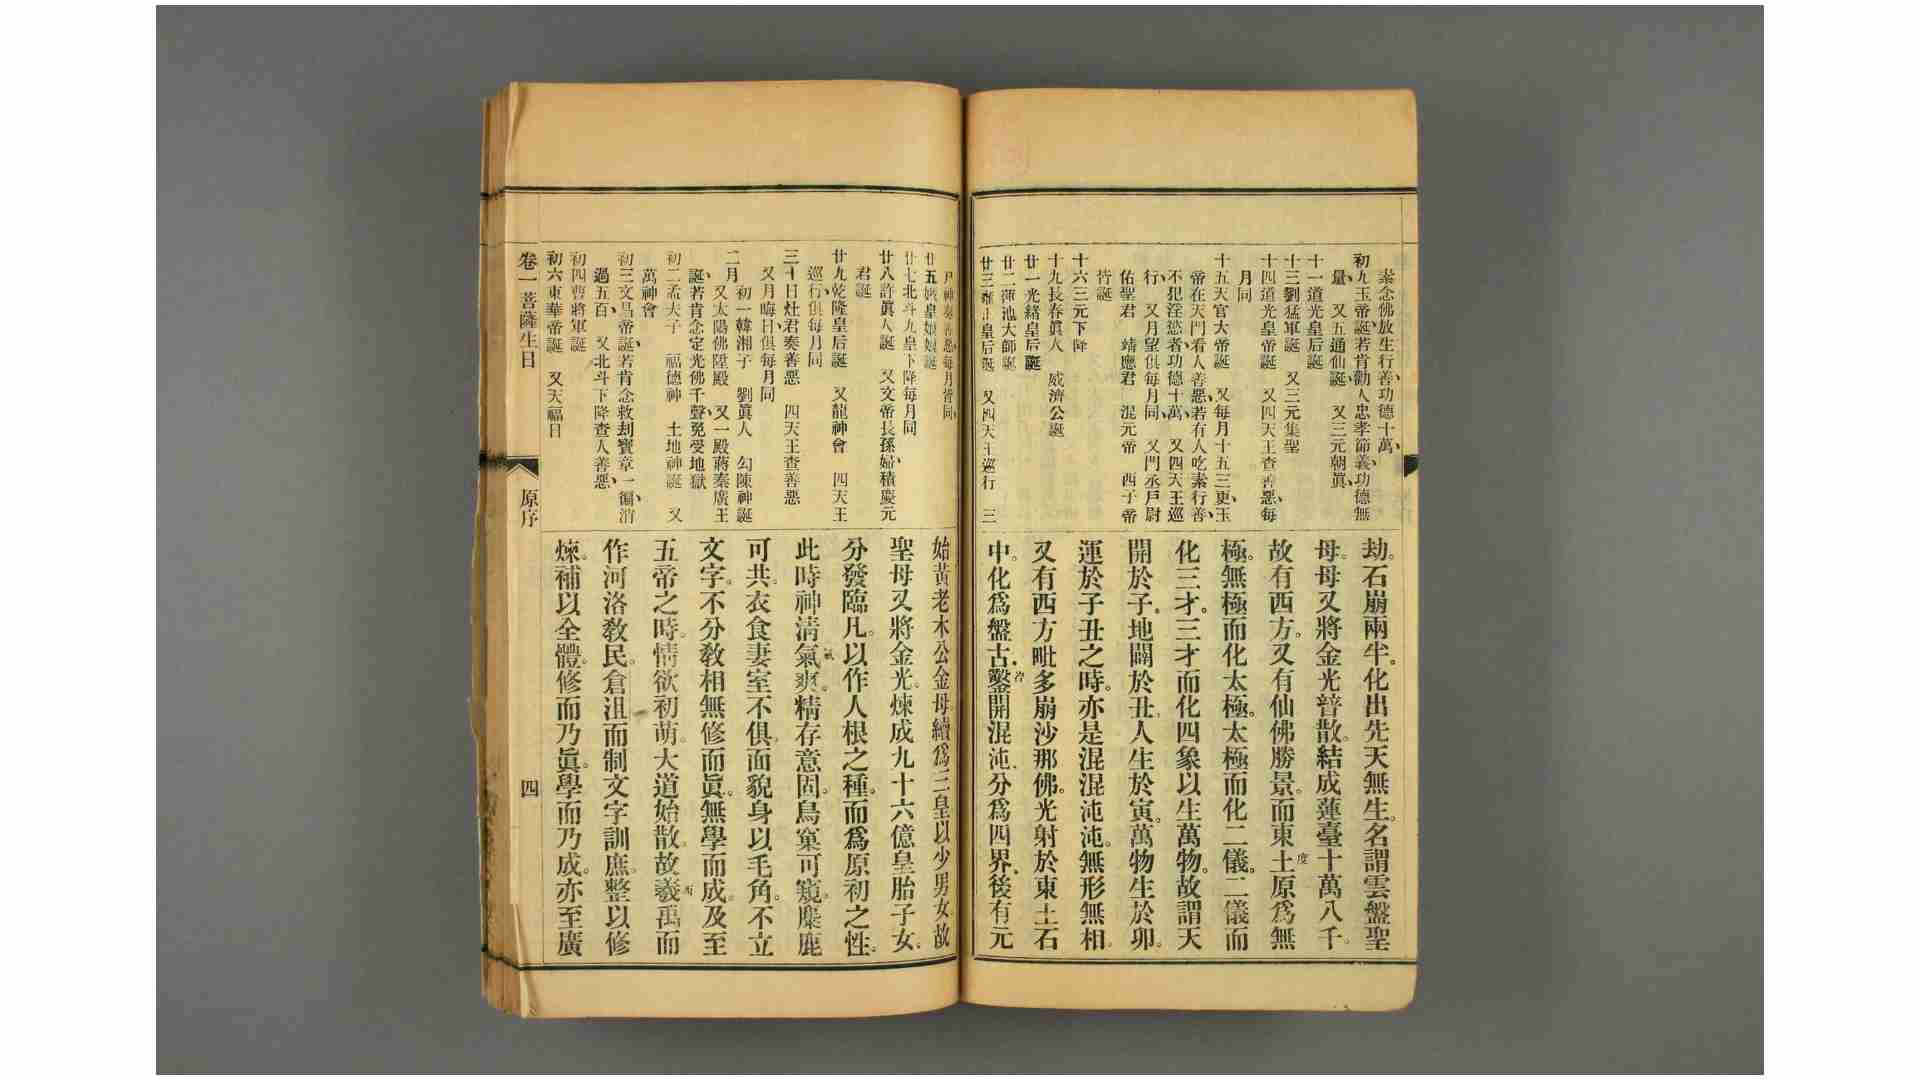 素念佛放生行善功德十萬
初九玉帝誕若肯勸人忠孝節義功德無
量 又五通仙誕 又三元朝眞
十一道光皇后誕
十三劉猛軍誕 又三元集聖
十四道光皇帝誕 又四天王查善惡每
月同
十五天官大帝誕 又每月十五三更玉
帝在天門看人善惡若有人吃素行善
不犯淫慾者功德十萬 又四天王巡
行 又月望俱每月同 又門丞戶尉
佑聖君 靖應君 混元帝 西子帝
皆誕
十六三元下降
十九長春眞人 威濟公誕
廿一光緒皇后誕
廿二蓮池大師誕
廿三雍正皇后誕 又四天王巡行 三
尸神奏善惡每月皆同
廿五娥皇娘娘誕
廿七北斗九皇下降每月同
廿八許眞人誕 又文帝長孫婦積慶元
君誕
廿九乾隆皇后誕 又龍神會 四天王
巡行俱每月同
三十日灶君奏善惡 四天王查善惡
又月晦日俱每月同
二月
初一韓湘子 劉眞人 勾陳神誕
又太陽佛陞殿 又一殿蔣秦廣王
誕若肯念定光佛千聲免受地獄
初二孟夫子 福德神 土地神誕 又
萬神會
初三文昌帝誕若肯念救刦寳章一徧消
過五百 又北斗下降查人善惡
初四曹將軍誕
初六東華帝誕 又天福日
劫。石崩兩半。化出先天無生。名謂雲盤聖
母。母又將金光普散。結成蓮臺十萬八千。
故有西方。又有仙佛勝景。而東土原爲無
極。無極而化太極。太極而化二儀。二儀而
化三才。三才而化四象以生萬物。故謂天
開於子。地闢於丑。人生於寅。萬物生於卯。
運於子丑之時。亦是混混沌沌。無形無相。
又有西方毗多崩沙那佛。光射於東土石
中。化爲盤古。鑿開混沌。分爲四界。後有元
始黃老木公金母。續爲三皇以少男女。故
聖母又將金光。煉成九十六億皇胎子女。
分發臨凡。以作人根之種。而爲原初之性。
此時神淸氣爽。精存意固。鳥窠可窺。麋鹿
可共。衣食妻室不俱。面貌身以毛角。不立
文字。不分敎相無修而眞。無學而成。及至
五帝之時。情欲初萌。大道始散。故羲禹而
作河洛敎民。倉沮而制文字訓庶。整以修
煉。補以全體。修而乃眞。學而乃成。亦至廣
卷一 菩薩生日
原序
四